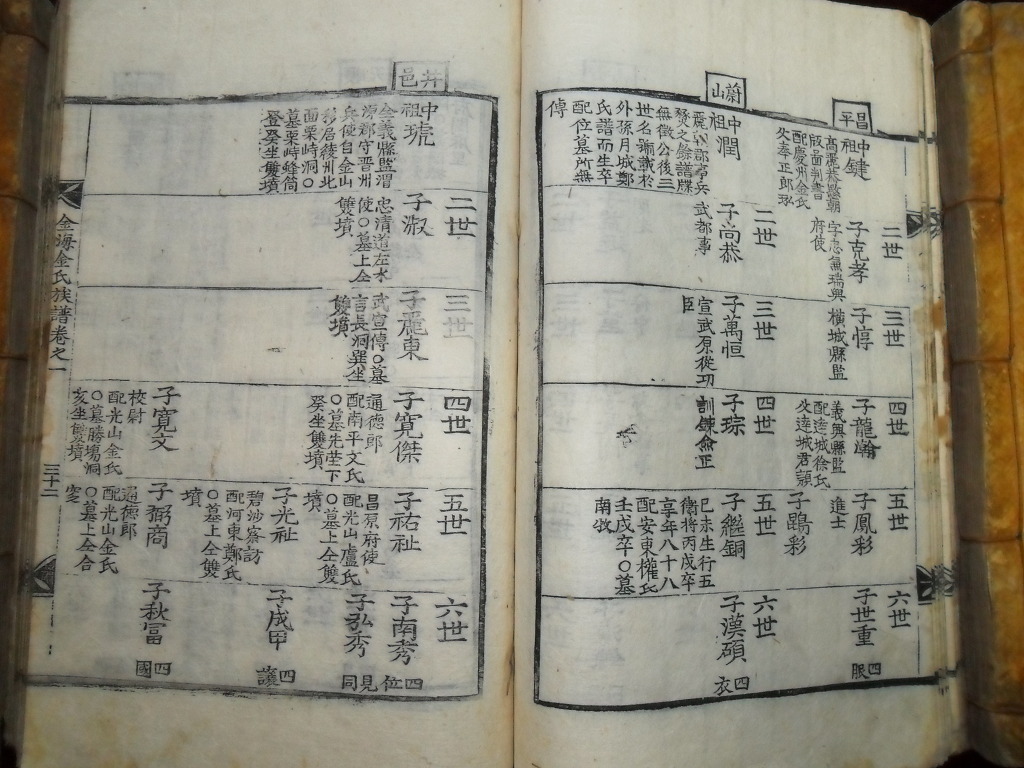 昌平
中祖鍵
配慶州金氏
二世
子克孝
府使
三世
子惇
橫城縣監
四世
子龍瀚
義興縣監
配達城徐氏
五世
子鳳彩
進士
子鵾彩
六世
子世重
四服
蔚山
中祖潤
無徵公後三
世名諱載於
外孫月城鄭
氏譜而生卒
配位墓所無
傳
二世
子尚恭
武都事
三世
子萬恒
宣武原從功
臣
四世
子琮
訓鍊僉正
五世
子繼銅
己未生行五
衛將丙戌卒
享年八十八
配安東權氏
壬戌卒〇墓
南牧
六世
子漢碩
四衣
井邑
中祖琥
兵使自金山
移居綾州北
面栗峙洞〇
墓栗峙蜂筒
登癸坐雙墳
二世
子淑
忠清道左水
使〇墓上仝
雙墳
三世
子麗東
武宣傳〇墓
言長洞巽坐
雙墳
四世
子寬傑
通德郎
配南平文氏
〇墓先塋下
癸坐雙墳
子寬文
校尉
配光山金氏
〇墓勝場洞
亥坐雙墳
五世
子祐祉
昌原府使
配光山盧氏
〇墓上仝雙
墳
子光祉
碧沙察訪
配河東鄭氏
〇墓上仝雙
墳
子弼商
通德郎
配光山金氏
〇墓上仝合
窆
六世
子南秀
四位
子弘秀
見同
子成甲
四讓
子秋冨
四國
金海金氏族譜卷之一
三十二